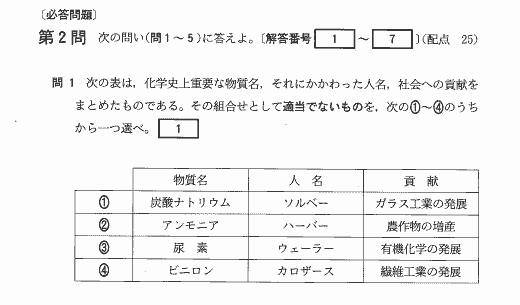 〔必答問題〕
第2問 次の問い(問1~5)に答えよ。〔解答番号 1 ~ 7 〕(配点 25)
問1 次の表は,化学史上重要な物質名,それにかかわった人名,社会への貢献を
まとめたものである。その組合せとして適当でないものを,次の①~④のうち
から一つ選べ。 1
物質名 人名 貢献
① 炭酸ナトリウム ソルベー ガラス工業の発展
② アンモニア ハーバー 農作物の増産
③ 尿素 ウェーラー 有機化学の発展
④ ビニロン カロザース 繊維工業の発展